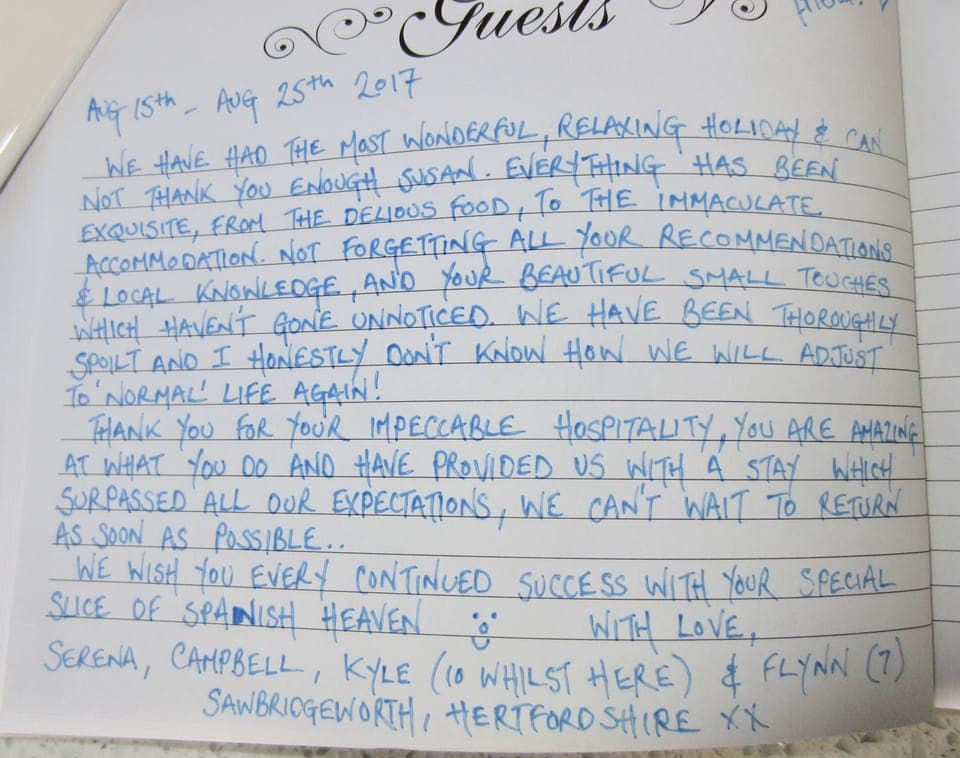 Guests
AUG 15th - AUG 25th 2017
WE HAVE HAD THE MOST WONDERFUL, RELAXING HOLIDAY & CAN
NOT THANK YOU ENOUGH SUSAN. EVERYTHING HAS BEEN
EXQUISITE, FROM THE DELIOUS FOOD, TO THE IMMACULATE
ACCOMMODATION. NOT FORGETTING ALL YOUR RECOMMENDATIONS
& LOCAL KNOWLEDGE, AND YOUR BEAUTIFUL SMALL TOUCHES
WHICH HAVEN'T GONE UNNOTICED. WE HAVE BEEN THOROUGHLY
SPOILT AND I HONESTLY DON'T KNOW HOW WE WILL ADJUST
TO 'NORMAL' LIFE AGAIN!
THANK YOU FOR YOUR IMPECCABLE HOSPITALITY, YOU ARE AMAZING
AT WHAT YOU DO AND HAVE PROVIDED US WITH A STAY WHICH
SURPASSED ALL OUR EXPECTATIONS, WE CAN'T WAIT TO RETURN
AS SOON AS POSSIBLE..
WE WISH YOU EVERY CONTINUED SUCCESS WITH YOUR SPECIAL
SLICE OF SPANISH HEAVEN WITH LOVE,
SERENA, CAMPBELL, KYLE (10 WHILST HERE) & FLYNN (7)
SAWBRIDGEWORTH, HERTFORDSHIRE XX